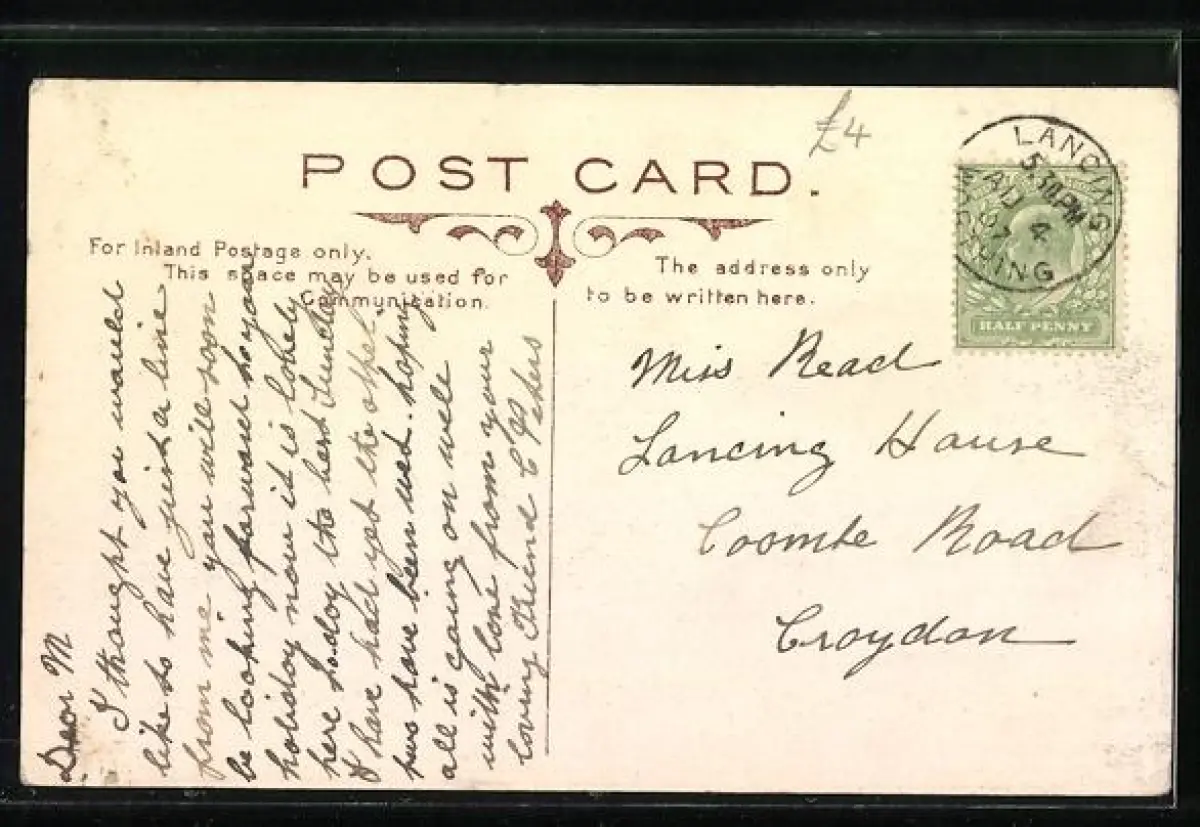 POST CARD.
£4
LANCING
5.30PM
AU 4
07
WORTHING
HALF PENNY
For Inland Postage only.
This space may be used for
Communication.
The address only
to be written here.
Miss Read
Lancing House
Coombe Road
Croydon
Dear M
I thought you would
like to have just a line
from me you will soon
be looking forward to your
holiday now it is lovely
here today the best Sunday
I have had yet the other
two have been wet. hoping
all is going on well
with love from your
loving Friend C Peters